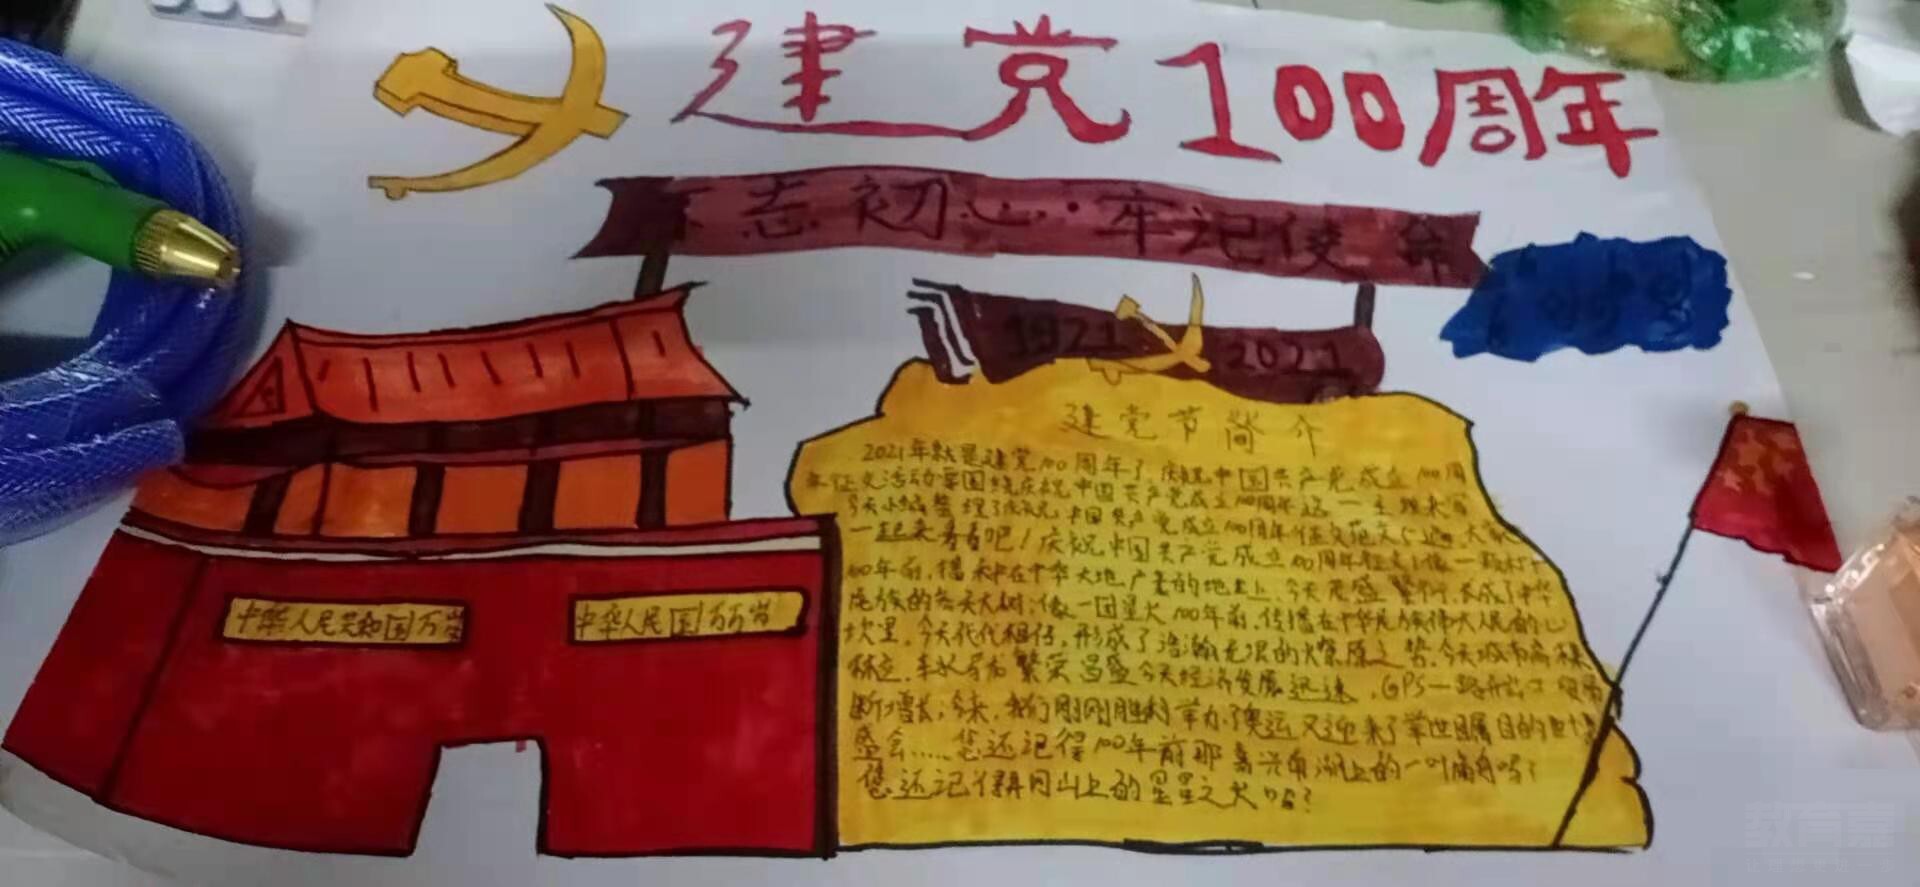 建党100周年
不忘初心·牢记使命
1921 2021
中华人民共和国万岁
中华人民国万万岁
建党节简介
2021年就是建党100周年了,庆祝中国共产党成立100周
年征文活动要围绕庆祝中国共产党成立100周年这一主题来写
今天小编整理了庆祝中国共产党成立100周年征文范文
一起来看看吧!庆祝中国共产党成立100周年征文1像一颗
100年前,播种在中华大地产量的地土上,今天茂盛繁衍,长成了中华
民族的参天大树;像一团星火100年前,传播在中华民族伟大人民的心
坎里,今天代代相传,形成了浩瀚无垠的燎原之势,今天城市高楼
林立,车水马龙繁荣昌盛今天经济发展迅速,GPS一路
断增长,今天,我们刚刚胜利举办了奥运又迎来了举世瞩目的世博
盛会……您还记得100年前那嘉兴南湖上的一叶扁舟吗?
您还记得井冈山上的星星之火吗?